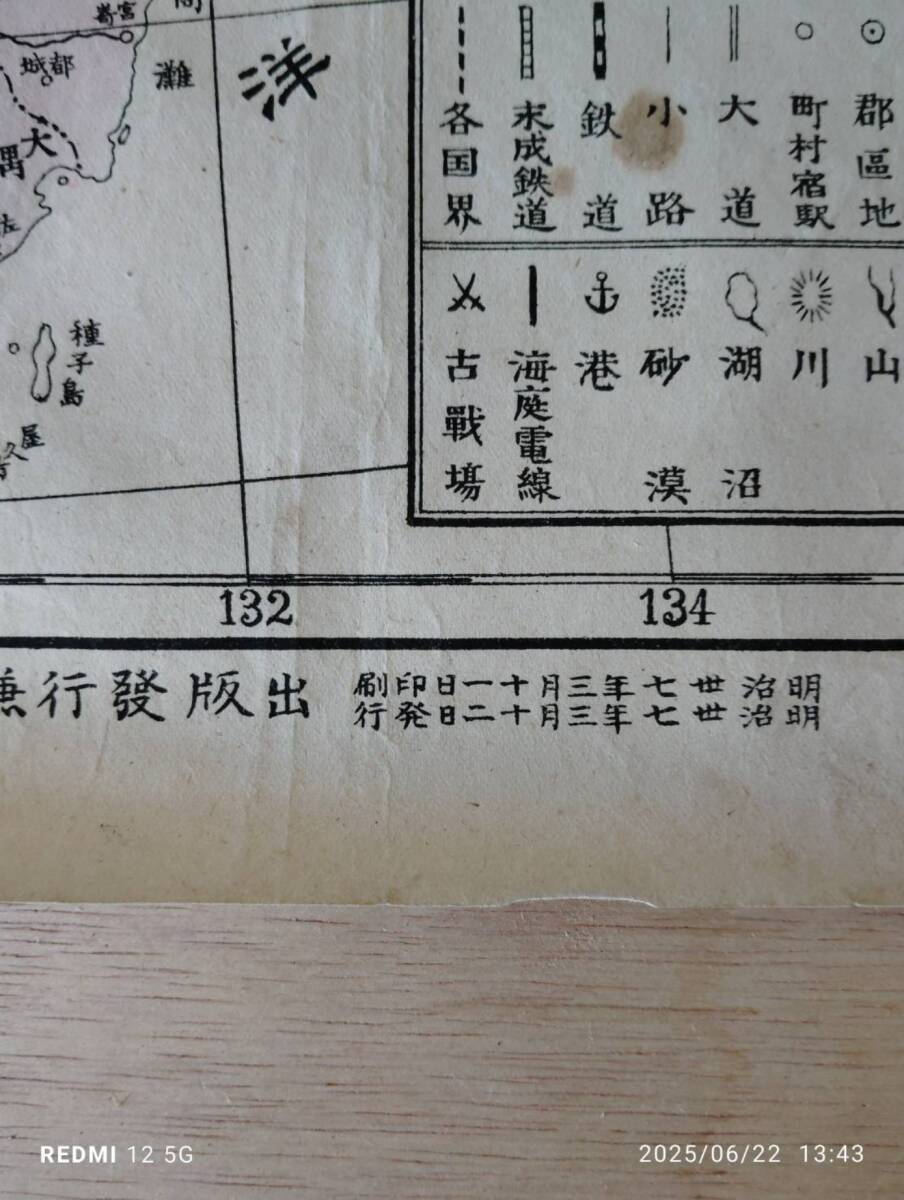 宮崎
都城
大隅
灘
洋
種子島
屋久
各国界
未成鉄道
鉄道
小路
大道
町村宿駅
郡區地
古戰場
海庭電線
港
砂漠
湖沼
川
山
132
134
刷印日一十月三年七丗治明
行発日二十月三年七丗治明
行發版出
REDMI 12 5G
2025/06/22 13:43